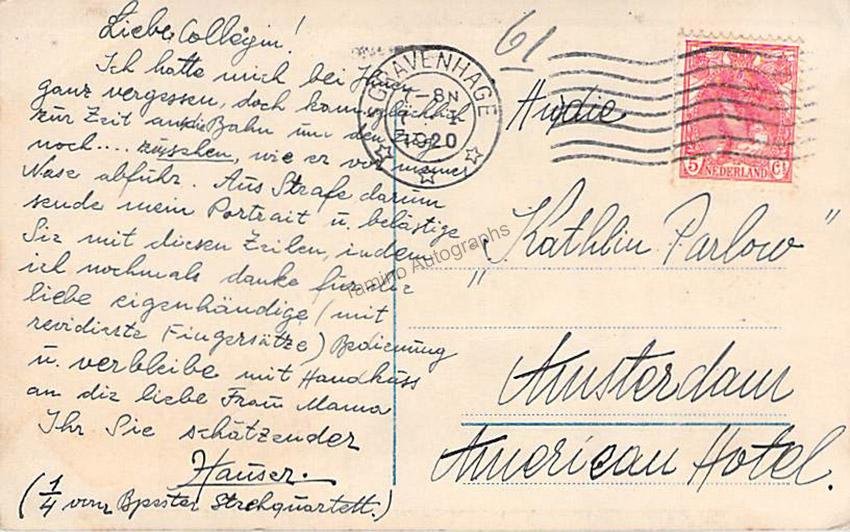 Liebe Collegin!
Ich hatte mich bei Ihnen
ganz vergessen, doch kam glücklich
zur Zeit an die Bahn um den Zug
noch.... zusehen, wie er vor meiner
Nase abfuhr. Aus Strafe darum
sende mein Portrait u. belästige
Sie mit diesen Zeilen, indem
ich nochmals danke für die
liebe eigenhändige (mit
revidierte Fingersätze) Bedienung
u. verbleibe mit Handkuss
an die liebe Frau Mama
Ihr Sie schätzender
Hauser.
(1/4 vom Bpester Strchquartett.)
61
'S GRAVENHAGE
8-N
1920
5 Ct
NEDERLAND
An die
"Kathlin Parlow"
Amsterdam
American Hotel.
Tamino Autographs